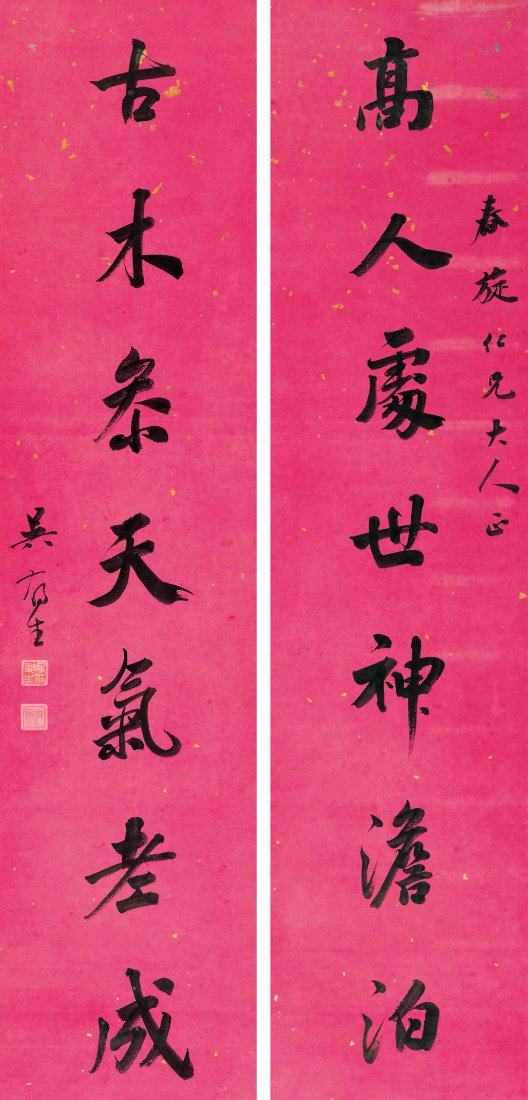 春旋仁兄大人正
高人處世神澹泊
古木參天氣老成
吳郁生